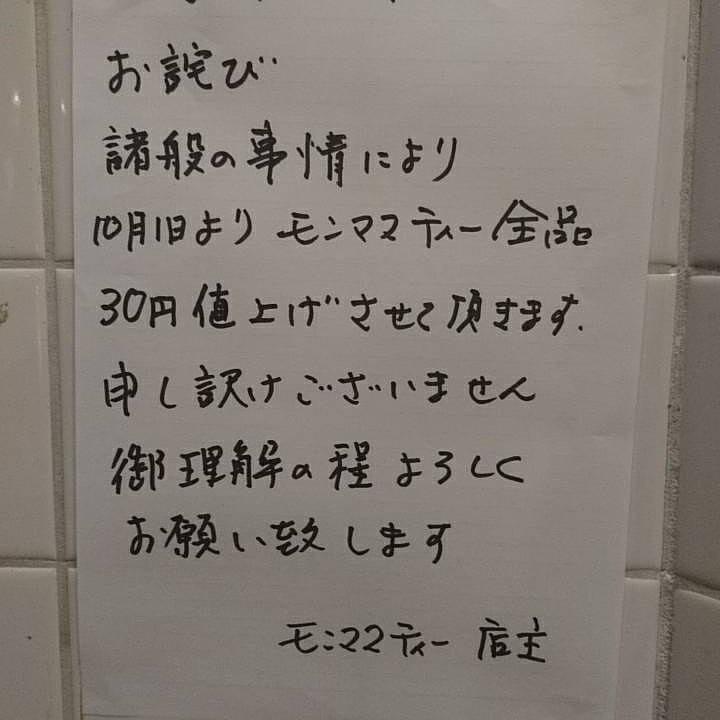 お詫び
諸般の事情により
10月1日より モンママティー全品
30円値上げさせて頂きます.
申し訳けございません
御理解の程よろしく
お願い致します
モンママティー 店主